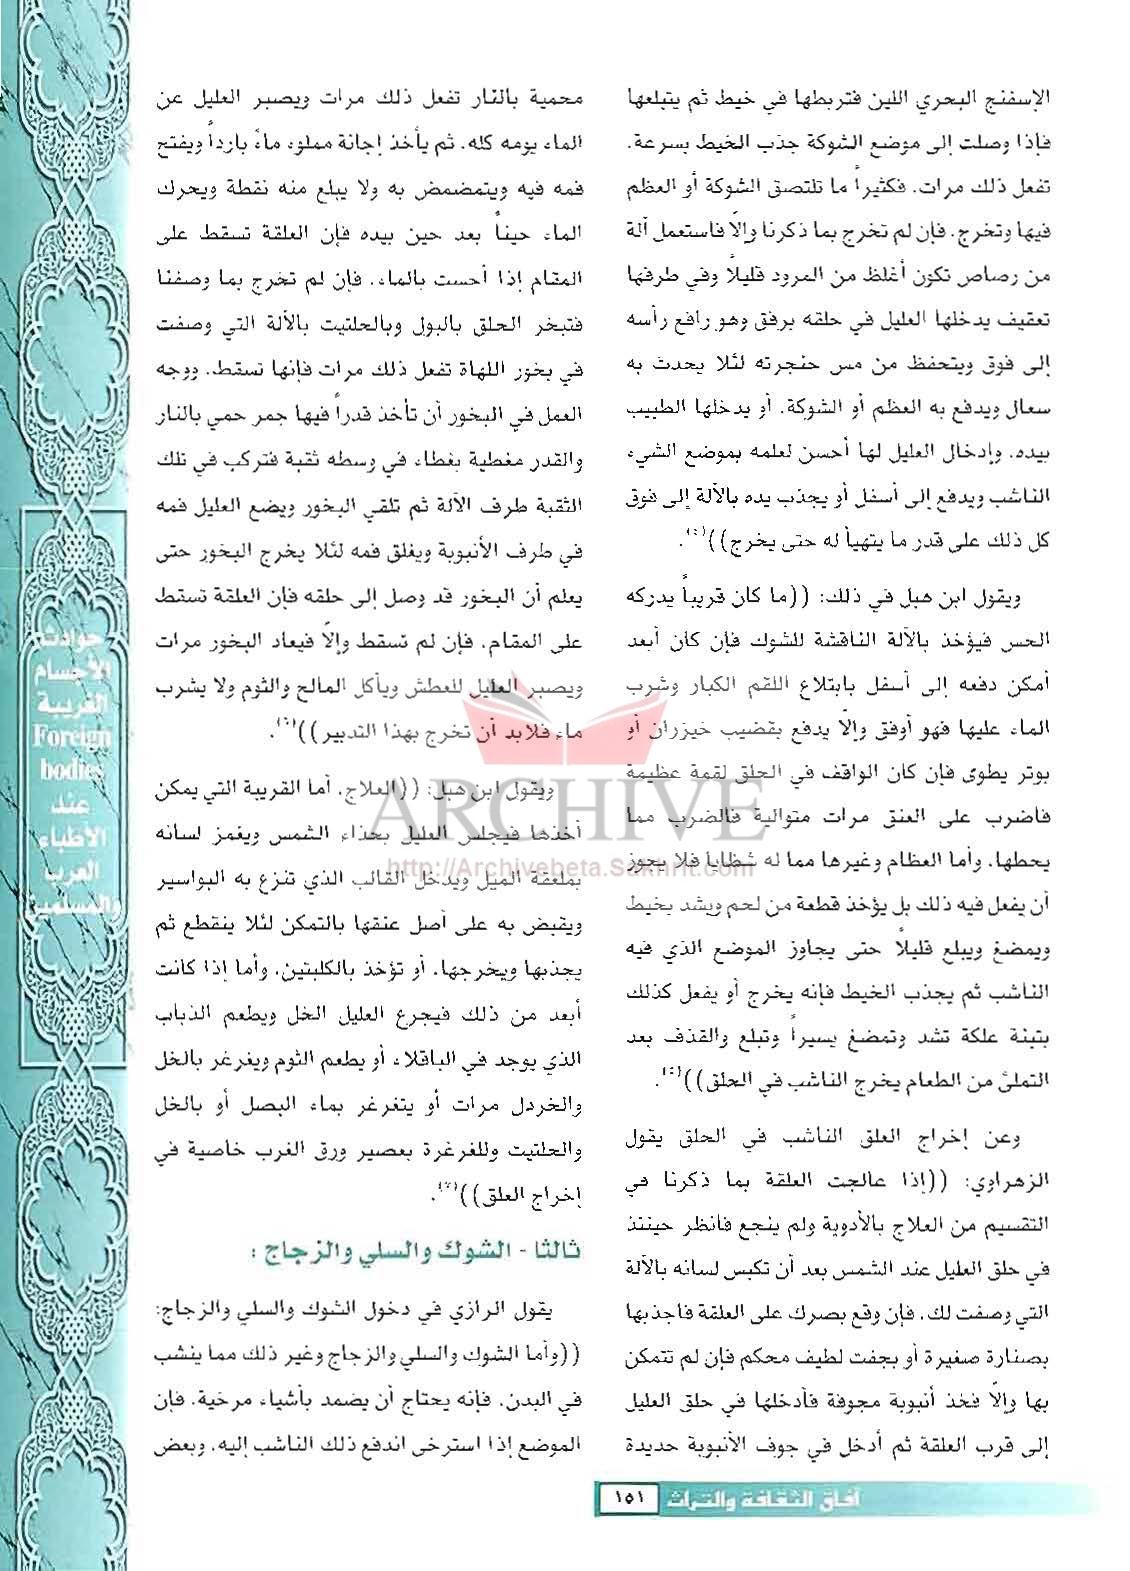 الإسفنج البحري اللين فتربطها في خيط ثم يبتلعها
فإذا وصلت إلى موضع الشوكة جذب الخيط بسرعة.
تفعل ذلك مرات. فكثيراً ما تلتصق الشوكة أو العظم
فيها وتخرج. فإن لم تخرج بما ذكرنا وإلاّ فاستعمل آلة
من رصاص تكون أغلظ من المرود قليلاً وفي طرفها
تعقيف يدخلها العليل في حلقه برفق وهو رافع رأسه
إلى فوق ويتحفظ من مس حنجرته لئلا يحدث به
سعال ويدفع به العظم أو الشوكة. أو يدخلها الطبيب
بيده. وإدخال العليل لها أحسن لعلمه بموضع الشيء
الناشب ويدفع إلى أسفل أو يجذب يده بالآلة إلى فوق
كل ذلك على قدر ما يتهيأ له حتى يخرج)).
ويقول ابن هبل في ذلك: ((ما كان قريباً يدركه
الحس فيؤخذ بالآلة الناقشة للشوك فإن كان أبعد
أمكن دفعه إلى أسفل بابتلاع اللقم الكبار وشرب
الماء عليها فهو أوفق وإلاّ يدفع بقضيب خيزران أو
بوتر يطوى فإن كان الواقف في الحلق لقمة عظيمة
فاضرب على العنق مرات متوالية فالضرب مما
يحطها. وأما العظام وغيرها مما له شظايا فلا يجوز
أن يفعل فيه ذلك بل يؤخذ قطعة من لحم ويشد بخيط
ويمضغ ويبلع قليلاً حتى يجاوز الموضع الذي فيه
الناشب ثم يجذب الخيط فإنه يخرج أو يفعل كذلك
بتينة علكة تشد وتمضغ يسيراً وتبلع والقذف بعد
التملئ من الطعام يخرج الناشب في الحلق)).
وعن إخراج العلق الناشب في الحلق يقول
الزهراوي: ((إذا عالجت العلقة بما ذكرنا في
التقسيم من العلاج بالأدوية ولم ينجع فانظر حينئذ
في حلق العليل عند الشمس بعد أن تكبس لسانه بالآلة
التي وصفت لك. فإن وقع بصرك على العلقة فاجذبها
بصنارة صغيرة أو بجفت لطيف محكم فإن لم تتمكن
بها وإلاّ فخذ أنبوبة مجوفة فأدخلها في حلق العليل
إلى قرب العلقة ثم أدخل في جوف الأنبوبة حديدة
محمية بالنار تفعل ذلك مرات ويصبر العليل عن
الماء يومه كله. ثم يأخذ إجانة مملوء ماءً بارداً ويفتح
فمه فيه ويتمضمض به ولا يبلع منه نقطة ويحرك
الماء حيناً بعد حين بيده فإن العلقة تسقط على
المقام إذا أحست بالماء. فإن لم تخرج بما وصفنا
فتبخر الحلق بالبول وبالحلتيت بالآلة التي وصفت
في بخور اللهاة تفعل ذلك مرات فإنها تسقط. ووجه
العمل في البخور أن تأخذ قدراً فيها جمر حمي بالنار
والقدر مغطية بغطاء في وسطه ثقبة فتركب في تلك
الثقبة طرف الآلة ثم تلقي البخور ويضع العليل فمه
في طرف الأنبوبة ويغلق فمه لئلا يخرج البخور حتى
يعلم أن البخور قد وصل إلى حلقه فإن العلقة تسقط
على المقام. فإن لم تسقط وإلاّ فيعاد البخور مرات
ويصبر العليل للعطش ويأكل المالح والثوم ولا يشرب
ماء فلابد أن تخرج بهذا التدبير)).
ويقول ابن هبل: ((العلاج. أما القريبة التي يمكن
أخذها فيجلس العليل بحذاء الشمس ويغمز لسانه
بملعقة الميل ويدخل القالب الذي تنزع به البواسير
ويقبض به على أصل عنقها بالتمكن لئلا ينقطع ثم
يجذبها ويخرجها. أو تؤخذ بالكلبتين. وأما إذا كانت
أبعد من ذلك فيجرع العليل الخل ويطعم الذباب
الذي يوجد في الباقلاء أو يطعم الثوم ويغرغر بالخل
والخردل مرات أو يتغرغر بماء البصل أو بالخل
والحلتيت وللغرغرة بعصير ورق الغرب خاصية في
إخراج العلق)).
ثالثا - الشوك والسلي والزجاج :
يقول الرازي في دخول الشوك والسلي والزجاج:
((وأما الشوك والسلي والزجاج وغير ذلك مما ينشب
في البدن. فإنه يحتاج أن يضمد بأشياء مرخية. فإن
الموضع إذا استرخى اندفع ذلك الناشب إليه. وبعض
حوادث
الأجسام
الغريبة
Foreign
bodies
عند
الأطباء
العرب
والمسلمين
ARCHIVE
http://Archivebeta.Sakhrit.com
آفاق الثقافة والتراث ١٥١